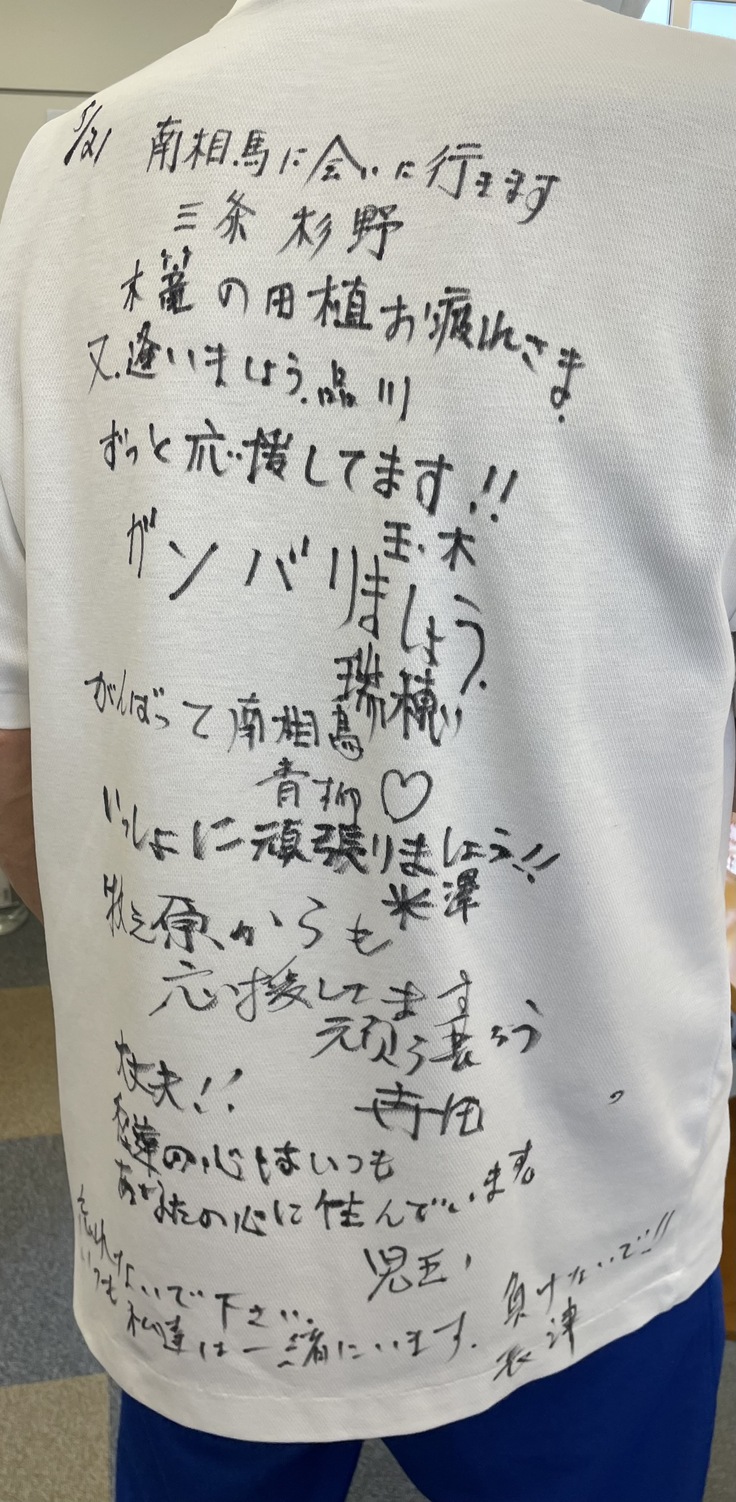 5/21 南相馬に会いに行きます
三条 杉野
木篭の田植お疲れさま。
又、逢いましょう。品川
ずっと応援してます!!
玉木
ガンバりましょう。
瑞穂
がんばって南相馬
青柳♡
いっしょに頑張りましょう!!
米澤
牧之原からも
応援してます
頑ろう
丈夫!!
私達の心はいつも
あなたの心に住んでいます。
児玉
忘れないで下さい。
いつも私達は一緒にいます。
負けないで!!